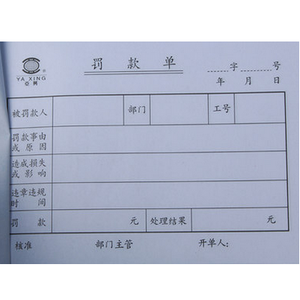 罚款单
YA XING
亚兴
字 号
年 月 日
被罚款人 部门 工号
罚款事由
或 原 因
造成损失
或 影 响
违章违规
时 间
罚 款 元 处理结果 元
核准 部门主管 开单人：